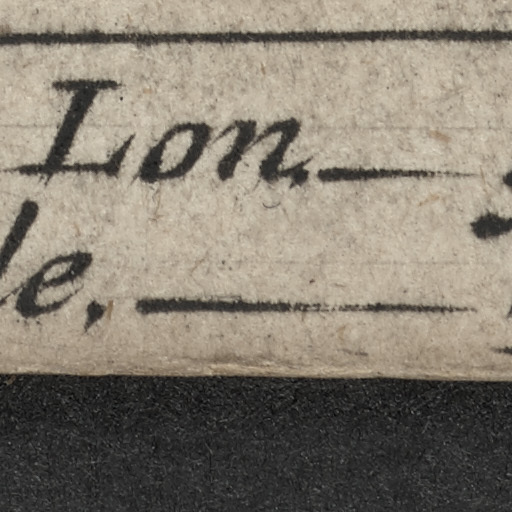 Lon.
le,